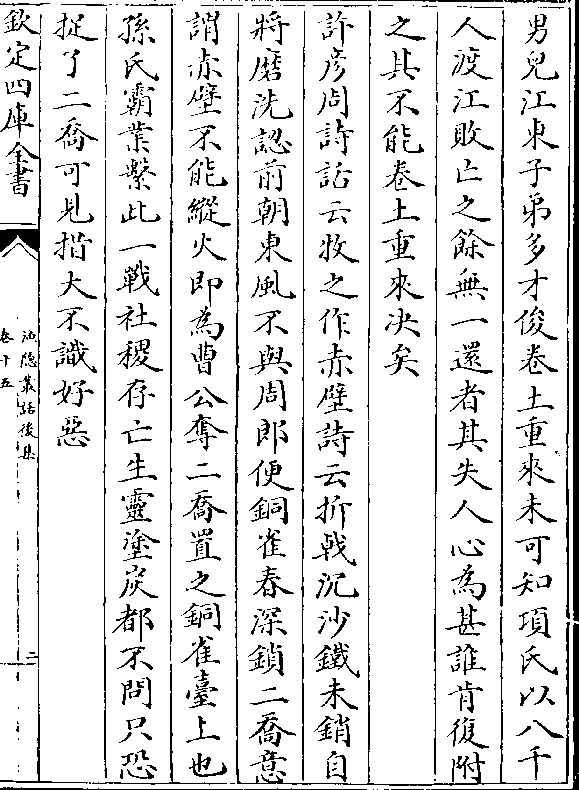 男兒江東子弟多才俊卷土重來未可知項氏以八千
人渡江敗亡之餘無一還者其失人心為甚誰肯復附
之其不能卷土重來决矣
許彥周詩話云牧之作赤壁詩云折戟沉沙鐵未銷自
將磨洗認前朝東風不與周郎便銅雀春深鎖二喬意
謂赤壁不能縱火即為曹公奪二喬置之銅雀臺上也
孫氏霸業繫此一戰社稷存亡生靈塗炭都不問只恐
捉了二喬可見措大不識好惡
欽定四庫全書
漁隱叢話後集
卷十五
二